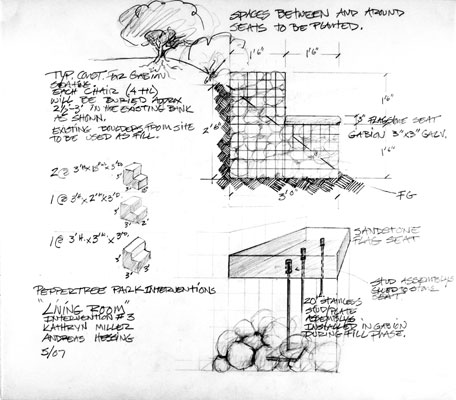 SPACES BETWEEN AND AROUND
SEATS TO BE PLANTED.
1'6"
1'6"
TYP. CONST. FOR GABION
SEATING.
EACH CHAIR (4 ttl)
WILL BE BURIED APPROX
2½'-3' IN THE EXISTING BANK
AS SHOWN.
EXISTING BOULDERS FROM SITE
TO BE USED AS FILL.
6"
2'6"
1'6"
FLAGSTONE SEAT
GABION 3"X3" GALV.
1'6"
3'0"
FG
2 @ 3'H x
1 @ 3'H x 2'H x 3'D
1 @ 3'H x 3'H x 3'D
3'
3'
2'
3'
3'
3'
SANDSTONE
FLAG SEAT
STUD ASSEMBLY
SEAT
20" STAINLESS
STUD/PLATE
ASSEMBLIES
INSTALLED IN GABION
DURING FILL PHASE.
PEPPERTREE PARK INTERVENTIONS
"LIVING ROOM"
INTERVENTION #3
KATHRYN MILLER
ANDREAS HESSING
5/07